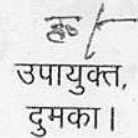 ह०/-
उपायुक्त,
दुमका।